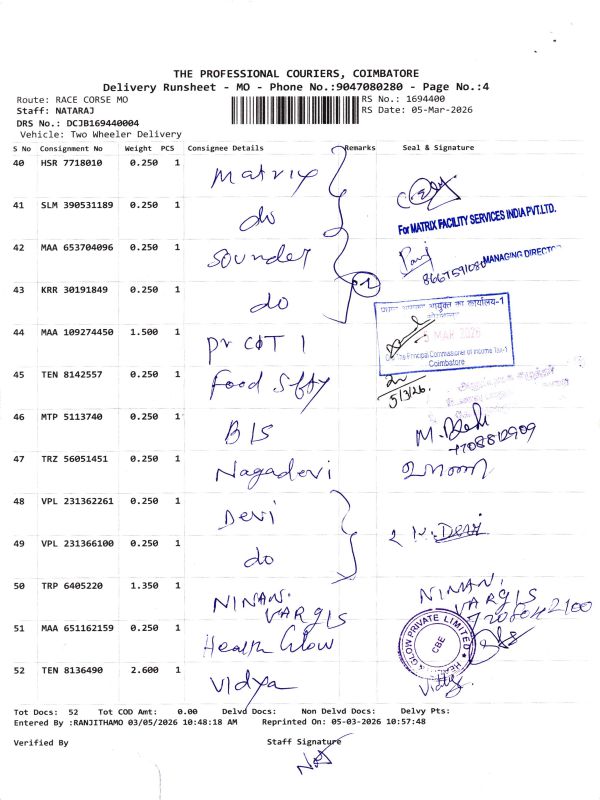 THE PROFESSIONAL COURIERS, COIMBATORE
Delivery Runsheet - MO - Phone No.:9047080280 - Page No.:4
Route: RACE CORSE MO
RS No.: 1694400
Staff: NATARAJ
RS Date: 05-Mar-2026
DRS No.: DCJB169440004
Vehicle: Two Wheeler Delivery
S No Consignment No Weight PCS Consignee Details Remarks Seal & Signature
40 HSR 7718010 0.250 1 Matrix
41 SLM 390531189 0.250 1 do
For MATRIX FACILITY SERVICES INDIA PVT.LTD.
42 MAA 653704096 0.250 1 Sounder
MANAGING DIRECTOR
43 KRR 30191849 0.250 1 do
44 MAA 109274450 1.500 1 pr CIT 1
MAR 2026
Principal Commissioner of Income Tax-1
Coimbatore
45 TEN 8142557 0.250 1 Food
5/3/26.
46 MTP 5113740 0.250 1 BIS
47 TRZ 56051451 0.250 1 Nagadevi
48 VPL 231362261 0.250 1 Devi
49 VPL 231366100 0.250 1 do
Devi
50 TRP 6405220 1.350 1 NINAN. VARGIS
NINAN. VARGIS
51 MAA 651162159 0.250 1 Health Glow
GLOW PRIVATE LIMITED
CBE
52 TEN 8136490 2.600 1 Vidya
Tot Docs: 52 Tot COD Amt: 0.00 Delvd Docs: Non Delvd Docs: Delvy Pts:
Entered By :RANJITHAMO 03/05/2026 10:48:18 AM Reprinted On: 05-03-2026 10:57:48
Verified By Staff Signature